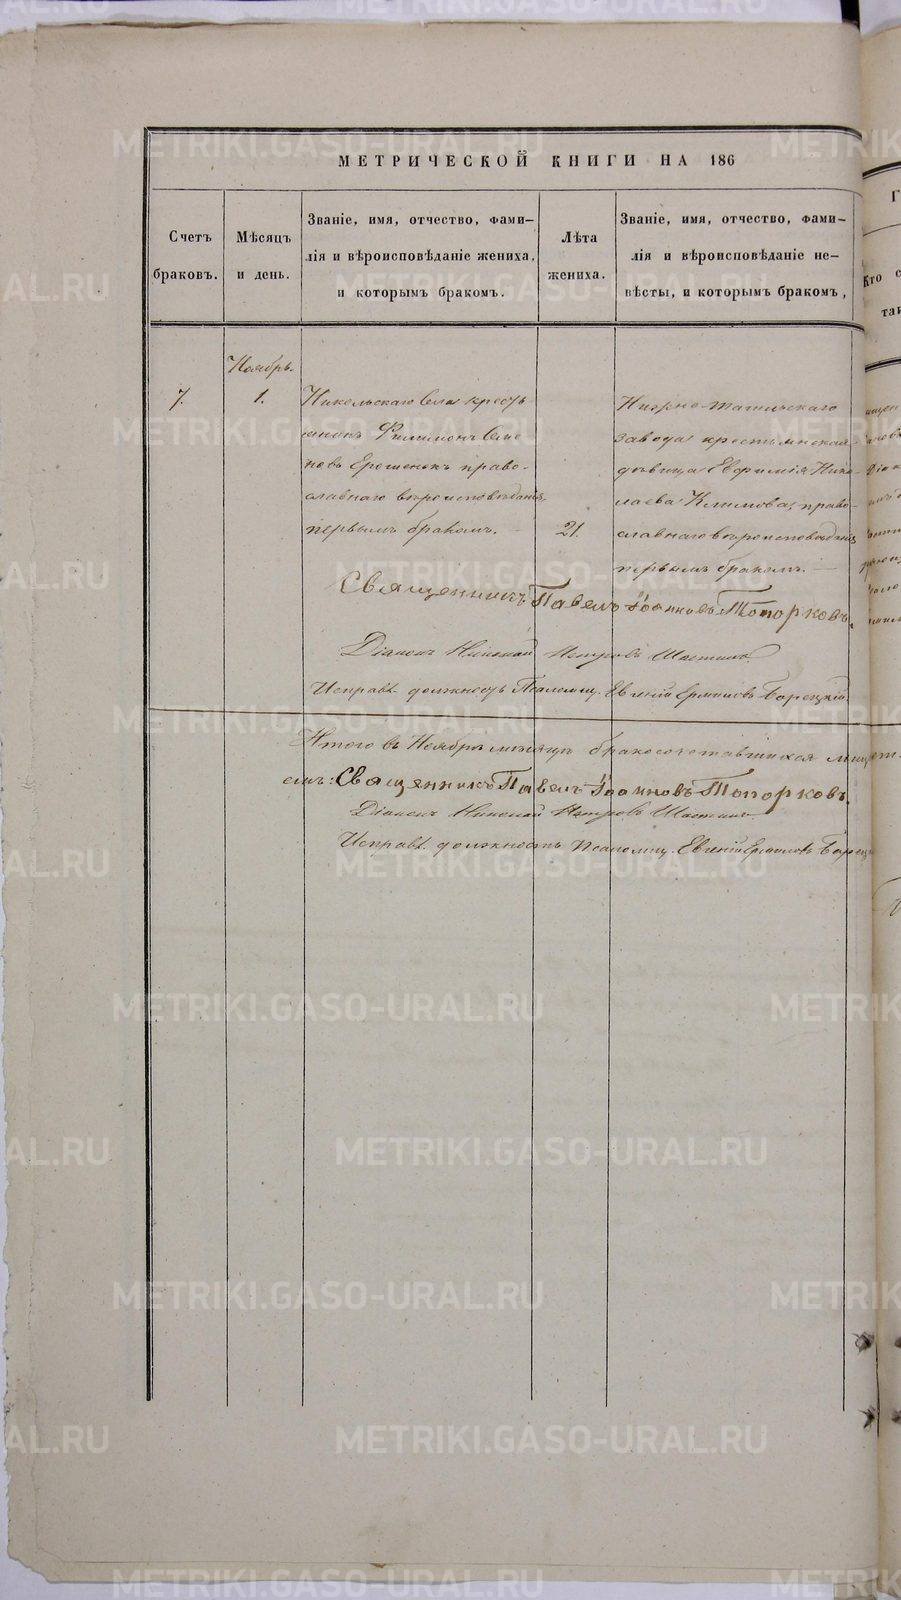 МЕТРИЧЕСКОЙ КНИГИ НА 186
Счетъ
браковъ.
Мѣсяцъ
и день.
Званіе, имя, отчество, фами-
лія и вѣроисповѣданіе жениха,
и которымъ бракомъ.
Лѣта
жениха.
Званіе, имя, отчество, фами-
лія и вѣроисповѣданіе не-
вѣсты, и которымъ бракомъ,
Ноябрь.
7.
1.
Никольскаго села кресть
янинъ Филимонъ Семе
новъ Ерошенокъ право-
славнаго вѣроисповѣданія
первымъ бракомъ.
21.
Нижно-Тагильскаго
завода крестьянская
дѣвица Евфимія Нико-
лаева Климова, право-
славнаго вѣроисповѣданія
первымъ бракомъ.
Священникъ Павелъ Іоанновъ Топорковъ.
Діаконъ Николай Петровъ
Исправл. должность Псаломщ. Евгеній Ермиловъ Борецкій.
Итого въ Ноябрѣ мѣсяцѣ бракосочетавшихся
Священникъ Павелъ Іоанновъ Топорковъ.
Діаконъ Николай Петровъ
Исправл. должность псаломщ. Евгеній Ермиловъ
METRIKI.GASO-URAL.RU